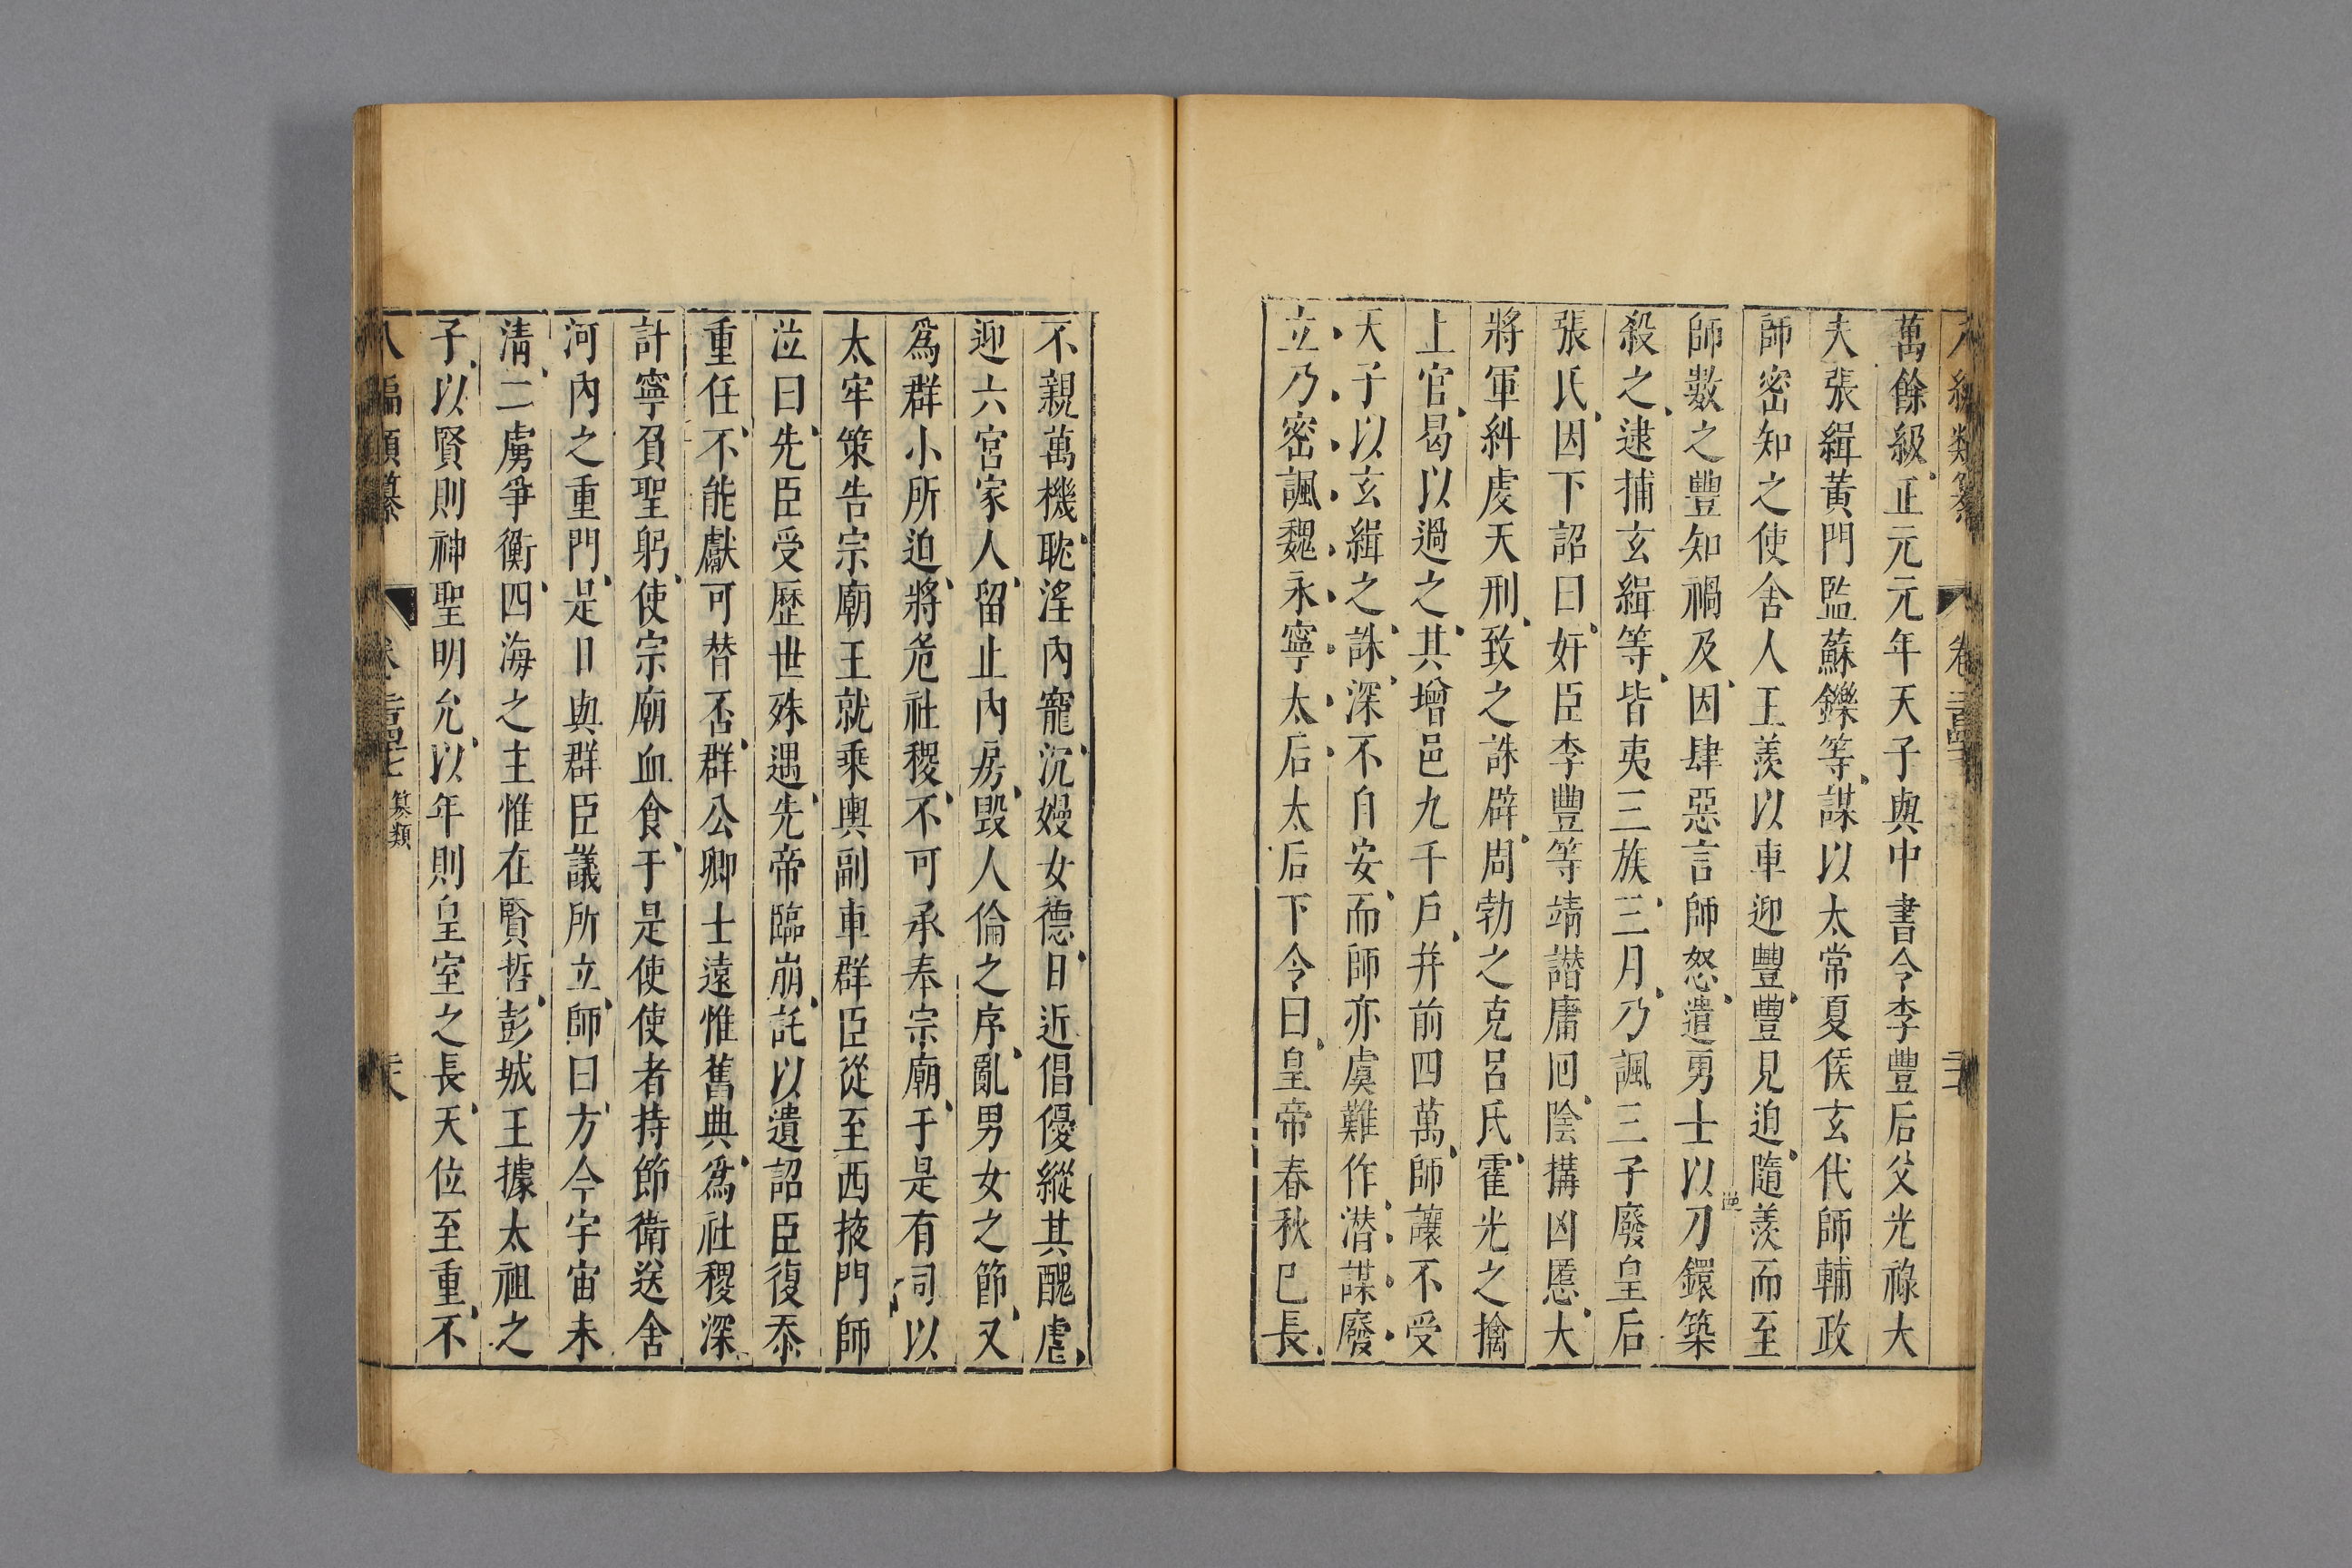 萬餘級正元元年天子與中書令李豐后父光祿大
夫張緝黃門監蘇鑠等謀以太常夏侯玄代師輔政
師密知之使舍人王羨以車迎豐豐見迫隨羨而至
師數之豐知禍及因肆惡言師怒遣勇士以刀鐶築
殺之逮捕玄緝等皆夷三族三月乃諷三子廢皇后
張氏因下詔曰奸臣李豐等靖譖庸回陰搆凶慝大
將軍糾虔天刑致之誅辟周勃之克呂氏霍光之擒
上官曷以過之其增邑九千戶并前四萬師讓不受
天子以玄緝之誅深不自安而師亦虞難作潛謀廢
立乃密諷魏永寧太后太后下令曰皇帝春秋已長
不親萬機耽淫內寵沉嫚女德日近倡優縱其醜虐
迎六宮家人留止內房毀人倫之序亂男女之節又
爲群小所迫將危社稷不可承奉宗廟于是有司以
太牢策告宗廟王就乘輿副車群臣從至西掖門師
泣曰先臣受歷世殊遇先帝臨崩託以遺詔臣復忝
重任不能獻可替否群公卿士遠惟舊典爲社稷深
計寧負聖躬使宗廟血食于是使使者持節衛送舍
河內之重門是日與群臣議所立師曰方今宇宙未
清二虜爭衡四海之主惟在賢哲彭城王據太祖之
子以賢則神聖明允以年則皇室之長天位至重不
八編類纂
卷
纂類